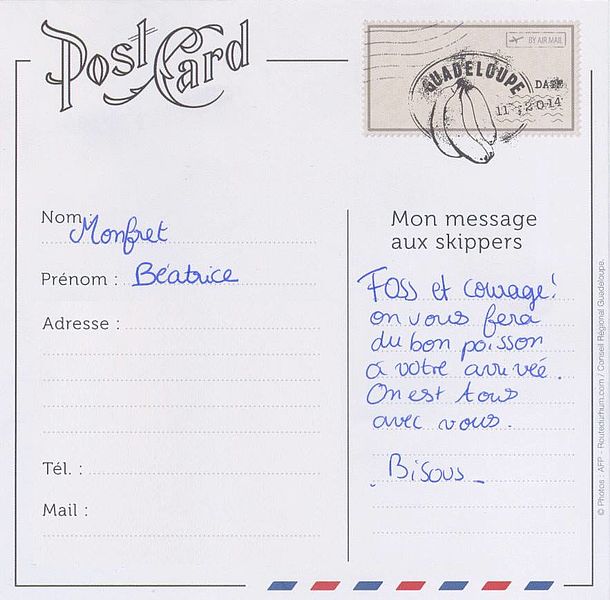 Post Card
BY AIR MAIL
GUADELOUPE
DATE
11 2014
Nom :
Monfret
Prénom : Béatrice
Adresse :
Tél. :
Mail :
Mon message
aux skippers
Foss et courage !
on vous fera
du bon poisson
à votre arruvée.
On est tous
avec vous.
Bisous
© Photos : AFP - Routedurhum.com / Conseil Régional Guadeloupe.